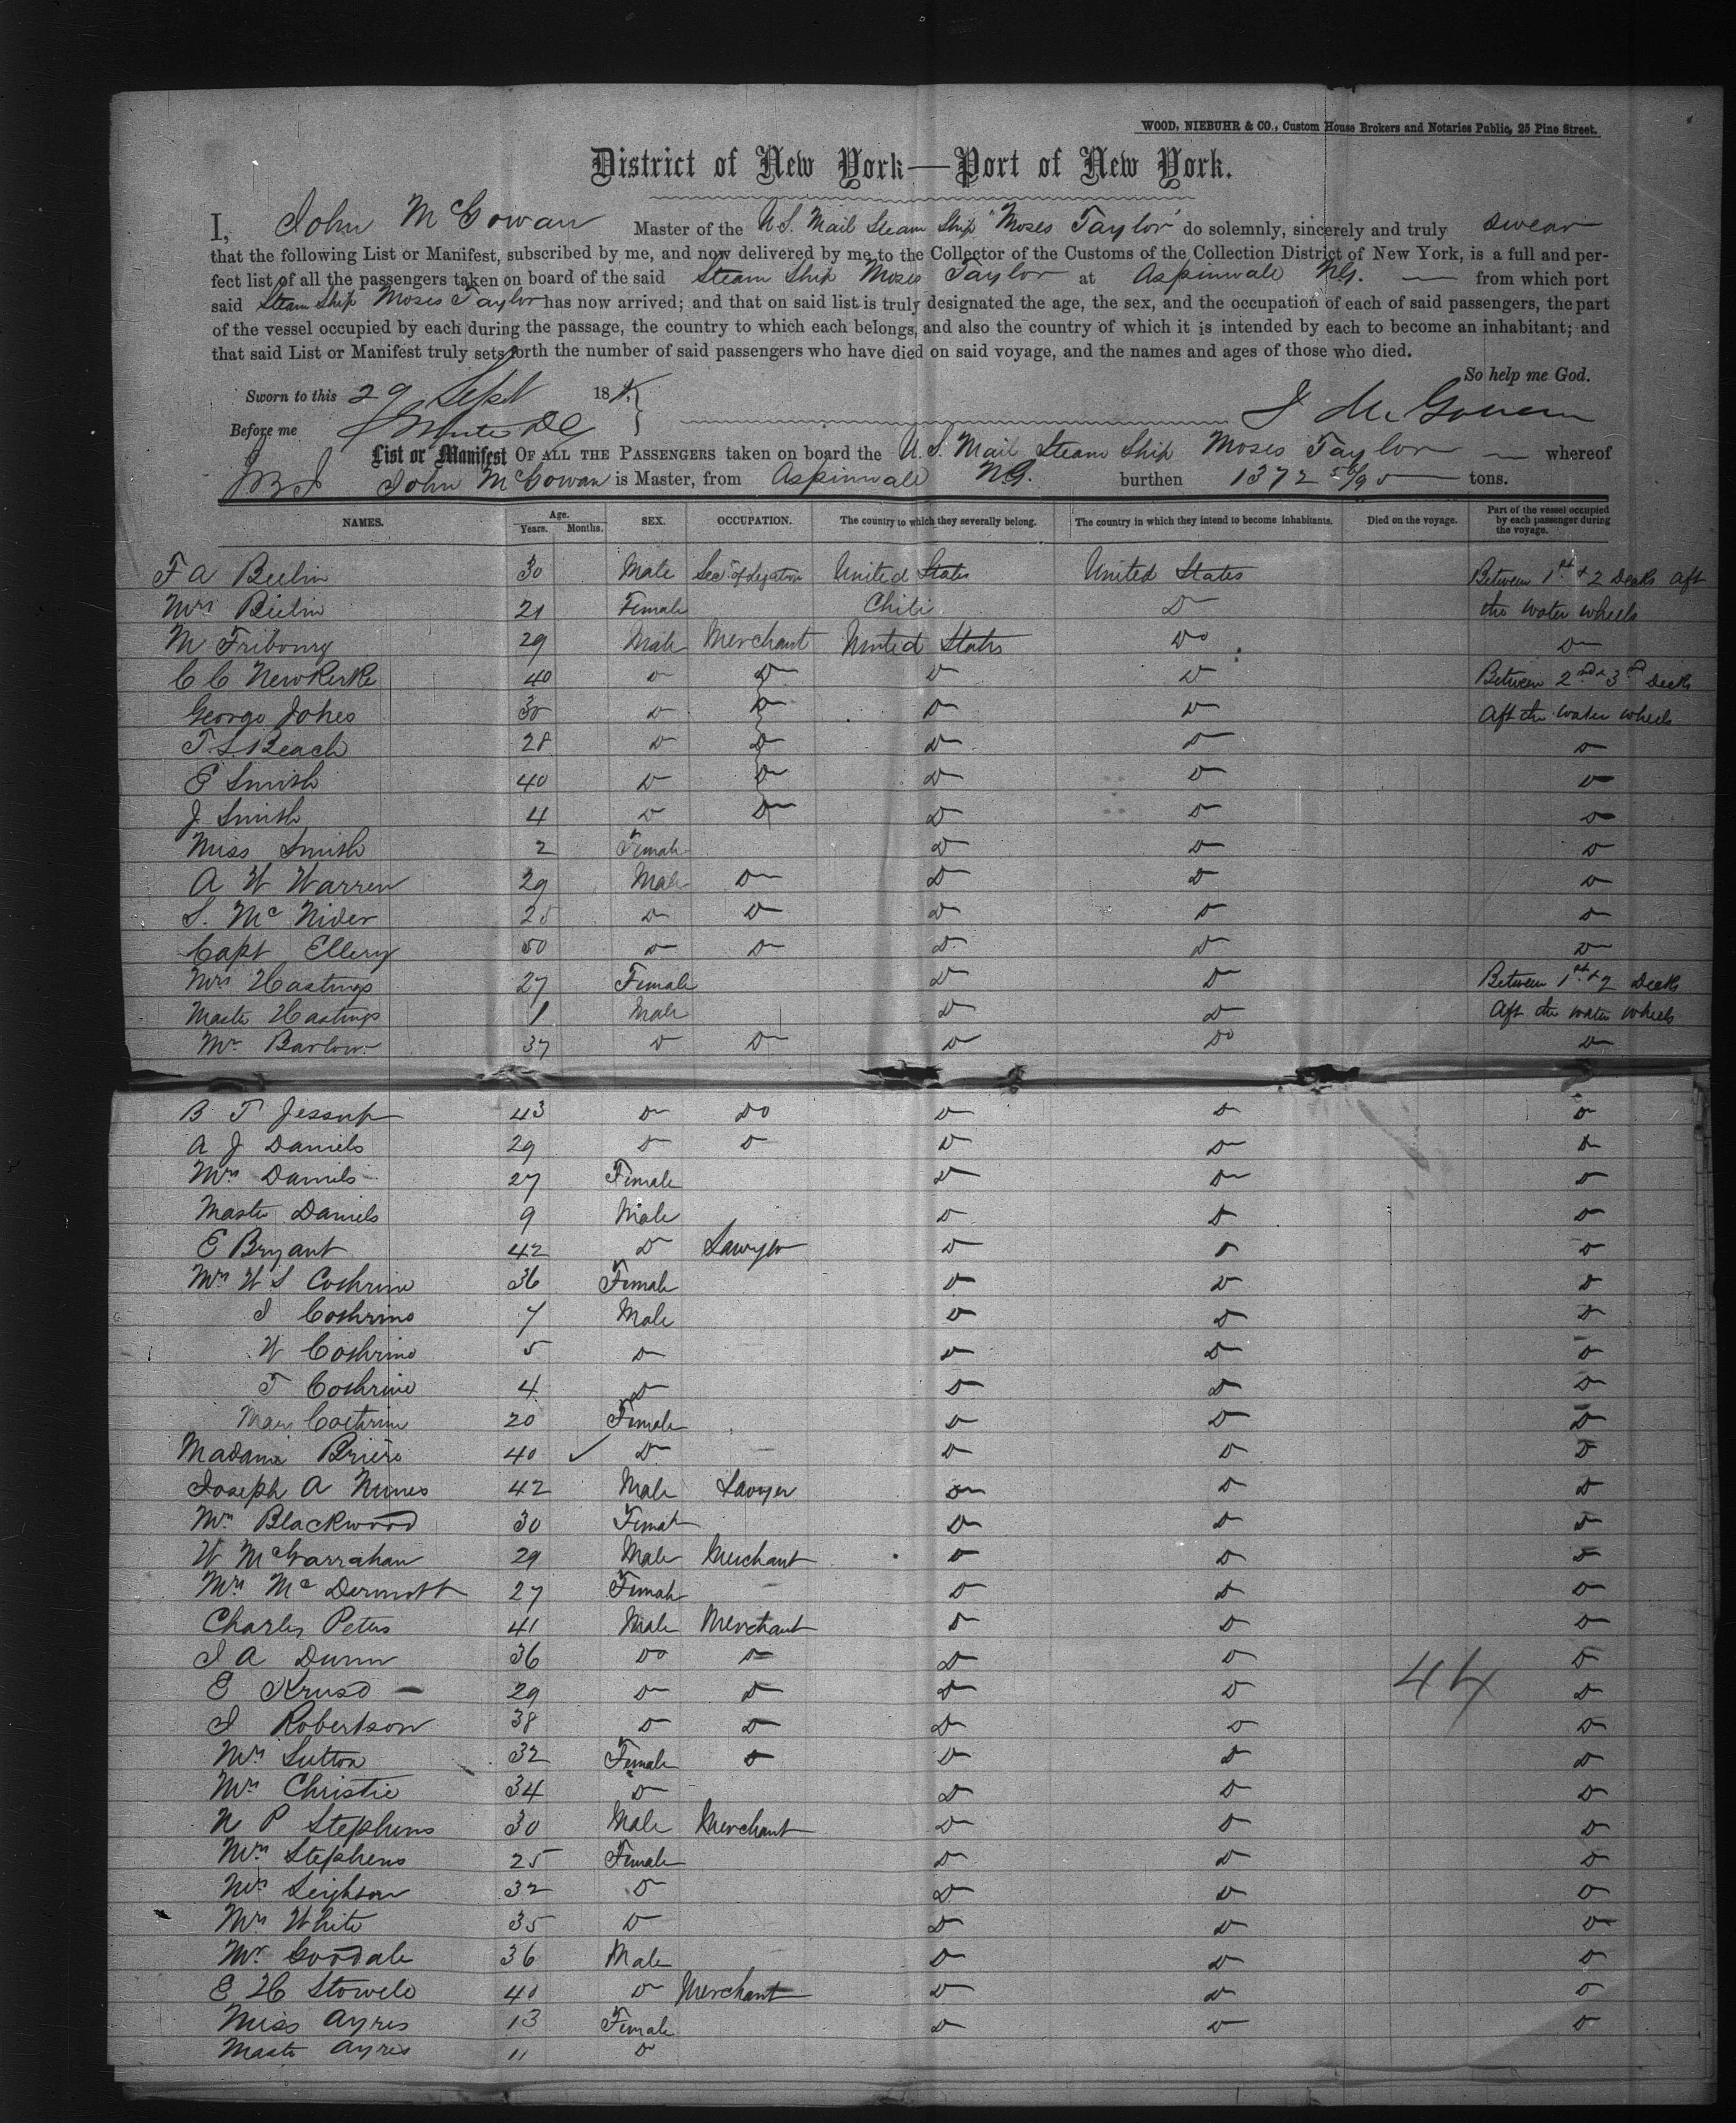 WOOD, NIEBUHR & CO., Custom House Brokers and Notaries Public, 25 Pine Street.
District of New York—Port of New York.
I, John McGowan Master of the U.S. Mail Steam Ship "Moses Taylor" do solemnly, sincerely and truly swear
that the following List or Manifest, subscribed by me, and now delivered by me to the Collector of the Customs of the Collection District of New York, is a full and per-
fect list of all the passengers taken on board of the said Steam Ship Moses Taylor at Aspinwall N.G. from which port
said Steam Ship Moses Taylor has now arrived; and that on said list is truly designated the age, the sex, and the occupation of each of said passengers, the part
of the vessel occupied by each during the passage, the country to which each belongs, and also the country of which it is intended by each to become an inhabitant; and
that said List or Manifest truly sets forth the number of said passengers who have died on said voyage, and the names and ages of those who died.
So help me God.
Sworn to this 29 Sept 18
J McGowan
Before me
List or Manifest OF ALL THE PASSENGERS taken on board the U.S. Mail Steam Ship Moses Taylor whereof
John McGowan is Master, from Aspinwall N.G. burthen 1372 tons.
NAMES. Age. Years. Months. SEX. OCCUPATION. The country to which they severally belong. The country in which they intend to become inhabitants. Died on the voyage. Part of the vessel occupied by each passenger during the voyage.
F A Beelin 30 Male Secy of Legation United States United States Between 1st & 2 Decks aft
Mrs Beelin 21 Female Chili Do the water wheels
M Fribourg 29 Male Merchant United States Do Do
C C Newkerke 40 Do Do Do Do Between 2nd & 3rd Decks
George Jones Do Do Do Do Aft the water wheels
T. S Beach 28 Do Do Do Do Do
E Smith 40 Do Do Do Do Do
J Smith 4 Do Do Do Do Do
Miss Smith 2 Female Do Do Do
A W Warren 29 Male Do Do Do Do
S. McNider 25 Do Do Do Do Do
Capt Ellery 50 Do Do Do Do Do
Mrs Hastings 27 Female Do Do Between 1st & 2 Decks
Master Hastings 1 Male Do Do Aft the water wheels
Mr Barlow 37 Do Do Do Do Do
B T Jessup 43 Do Do Do Do Do
A J Daniels 29 Do Do Do Do Do
Mrs Daniels 27 Female Do Do Do
Master Daniels 9 Male Do Do Do
E Bryant 42 Do Lawyer Do Do Do
Mrs W S Cothrine 36 Female Do Do Do
J Cothrine 7 Male Do Do Do
W Cothrine 5 Do Do Do Do
T Cothrine 4 Do Do Do Do
Mary Cothrine 20 Female Do Do Do
Madame Briere 40 ✓ Do Do Do Do
Joseph A Nunes 42 Male Lawyer Do Do Do
Mrs Blackwood 30 Female Do Do Do
W McGarrahan 29 Male Merchant Do Do Do
Mrs McDermott 27 Female Do Do Do
Charles Peters 41 Male Merchant Do Do Do
J A Dunn 36 Do Do Do Do Do
E Kruso 29 Do Do Do Do 44 Do
J Robertson 38 Do Do Do Do Do
Mrs Sutton 32 Female Do Do Do Do
Mrs Christie 34 Do Do Do Do
N P Stephens 30 Male Merchant Do Do Do
Mrs Stephens 25 Female Do Do Do
Mrs Leighton 32 Do Do Do Do
Mrs White 35 Do Do Do Do
Mr Goodale 36 Male Do Do Do
E H Stowell 40 Do Merchant Do Do Do
Miss Ayres 13 Female Do Do Do
Master Ayres 11 Do